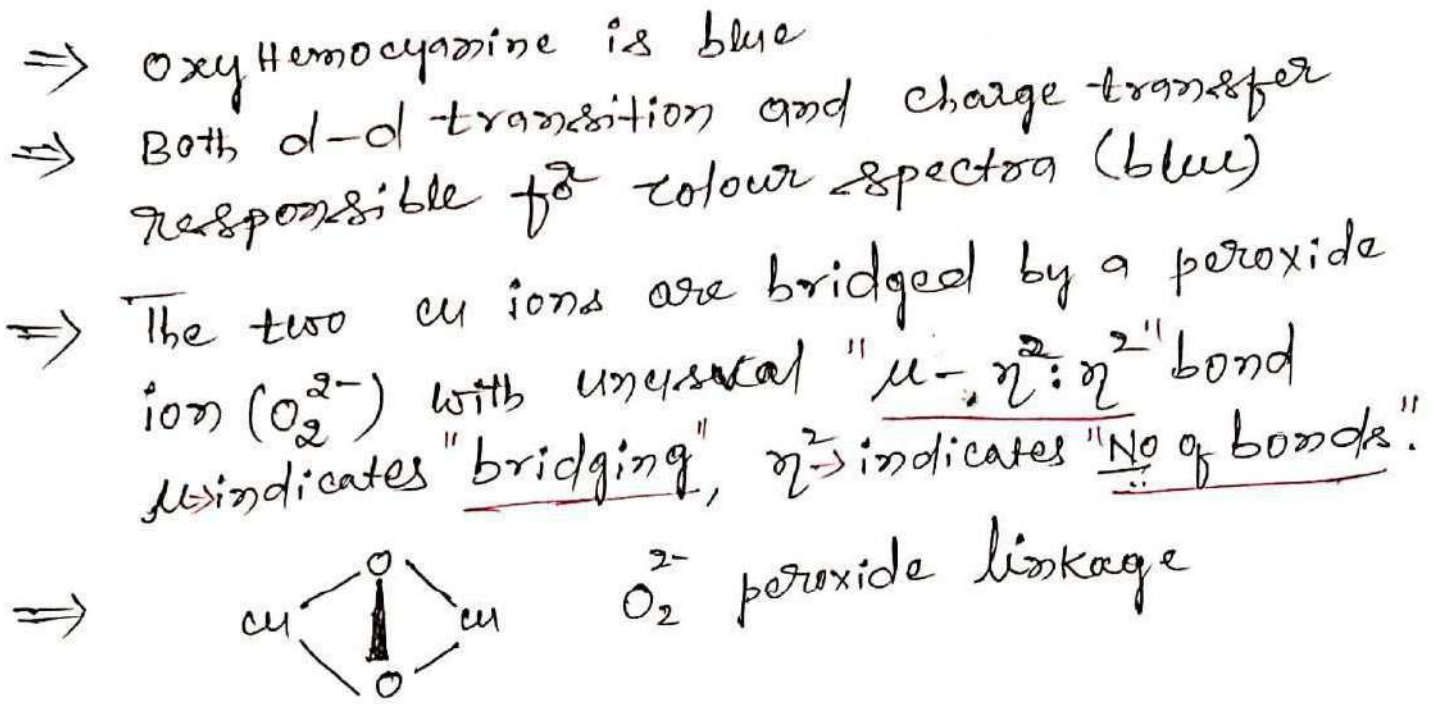 ⇒ OxyHemocyanine is blue
⇒ Both d-d transition and charge transfer
responsible for colour spectra (blue)
⇒ The two Cu ions are bridged by a peroxide
ion (O₂²⁻) with unusual "μ-η²:η²" bond
μ→indicates "bridging", η²→indicates "No of bonds".
⇒ Cu O O Cu O₂²⁻ peroxide linkage